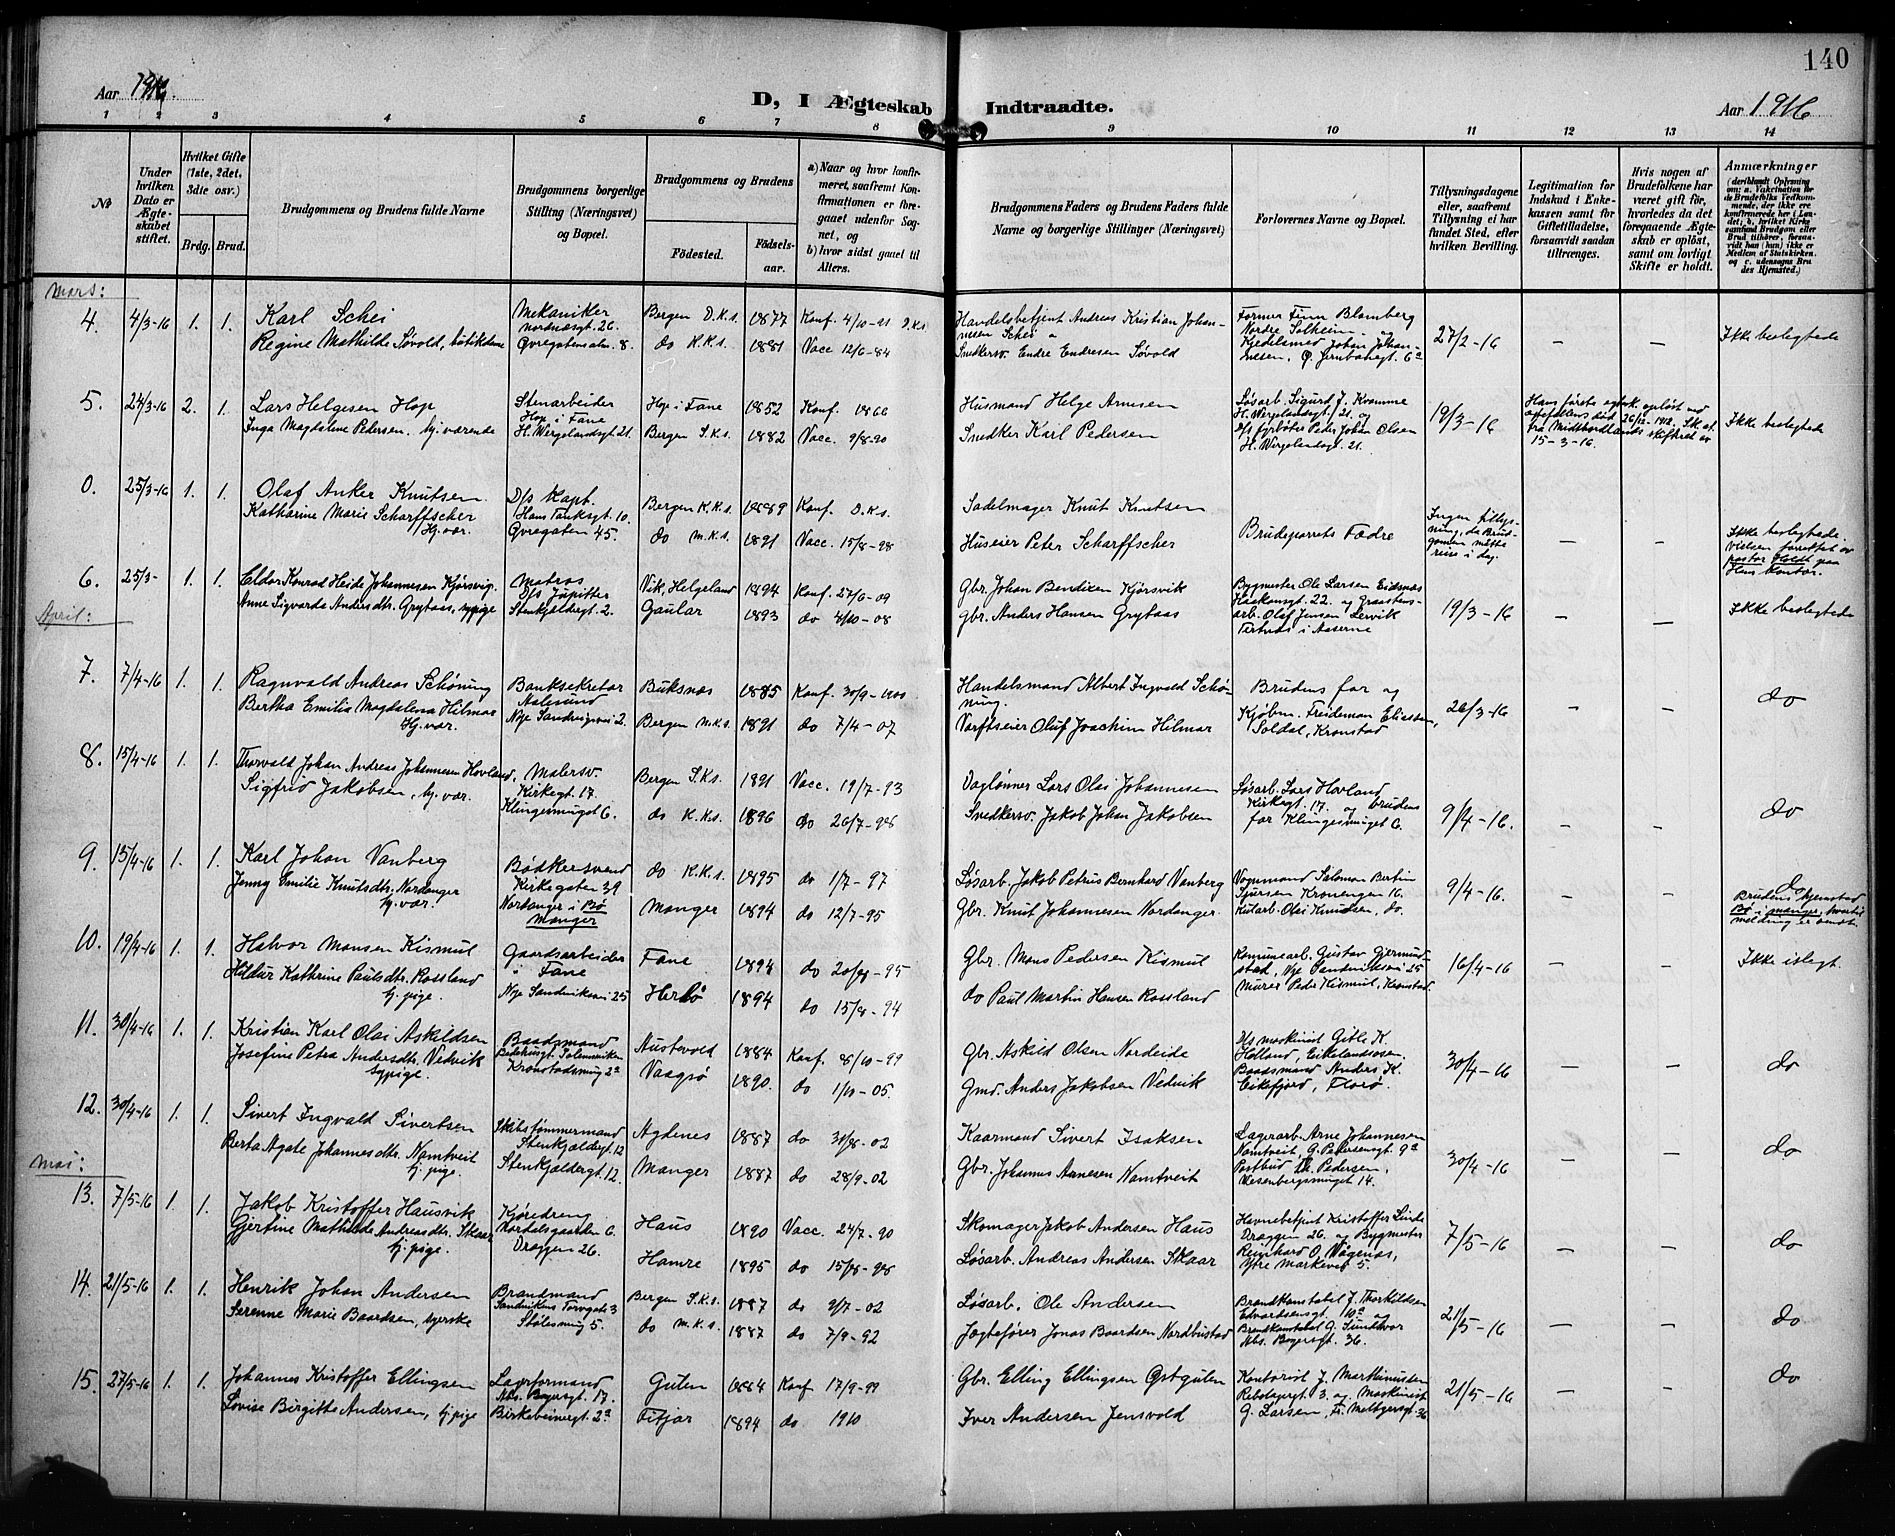 140
Aar 1916.
D, I Ægteskab Indtraadte.
Aar 1916
1 2 3 4 5 6 7 8 9 10 11 12 13 14
No
Under hvilken Dato er Ægteskabet stiftet.
Hvilket Gifte (1ste, 2det, 3die osv.)
Brdg. Brud.
Brudgommens og Brudens fulde Navne
Brudgommens borgerlige Stilling (Næringsvei) og Bopæl.
Brudgommens og Brudens
Fødested. Fødselsaar.
a) Naar og hvor konfirmeret, saafremt Konfirmationen er foregaaet udenfor Sognet, og
b) hvor sidst gaaet til Alters.
Brudgommens Faders og Brudens Faders fulde Navne og borgerlige Stillinger (Næringsvei)
Forlovernes Navne og Bopæl.
Tillysningsdagene eller, saafremt Tillysning ei har fundet Sted, efter hvilken Bevilling.
Legitimation for Indskud i Enkekassen samt for Giftetilladelse, forsaavidt saadan tiltrænges.
Hvis nogen af Brudefolkene har været gift før, hvorledes da det foregaaende Ægteskab er opløst, samt om lovligt Skifte er holdt.
Anmærkninger
(deriblandt Oplysning om: a. Vakcination for de Brudefolks Vedkommende, der ikke ere konfirmerede her i Landet; b. hvilket Kirkesamfund Brudgom eller Brud tilhører, forsaavidt han (hun) ikke er Medlem af Statskirken. og c. udensogns Brudes Hjemsted.)
Mars:
4. 4/3-16 1. 1. Karl Schei Mekaniker Nordnæsgt. 26. Bergen D.K.s. 1877 Konf. 4/10-91 D.K.s. Handelsbetjent Andreas Kristian Johannesen Schei Former Finn Blomberg Nordre Solheim og 27/2-16 – – Ikke beslegtede
Regine Mathilde Søvold, butikdame Øvregatens alm. 8. do K.K.s. 1881 Vacc 12/6-84 Snedkersv. Endre Endresen Søvold Kjedelsmed Johan Johannesen, Ø. Jernbanegt. 6a
5. 24/3-16 2. 1. Lars Helgesen Hop Stenarbeider Hop i Fane Hop i Fane 1852 Konf. 1866 Husmand Helge Arnesen Løsarb. Sigurd J. Kromme H. Wergelandsgt. 21. og 19/3-16 Hans første egtsk. opløst ved ægtefællens død 26/12-1912. Sk.at. fra Midthordlands skifteret av 15-3-16. Ikke beslegtede
Inga Magdalene Pedersen. hj.værende H. Wergelandsgt. 21. Bergen S.K.s. 1882 Vacc. 9/8-90 Snedker Karl Pedersen D/s fyrbøter Peder Johan Olsen H. Wergelandsgt. 21.
0. 25/3-16 1. 1. Olaf Anker Knutsen D/s Kapt. Hans Tanksgt. 10. Bergen K.K.s. 1889 Konf. D.K.s. Sadelmager Knut Knutsen Brudeparets Fædre Ingen tillysning, da Brudgommen måtte reise i dag. – – Ikke beslegtede. Vielsen forrettet av pastor Holdt paa Hans kontor.
Katharine Marie Scharffscher Hj.vær. Øvregaten 45. do M.K.s. 1891 Vacc. 15/8-98 Huseier Peter Scharffscher
6. 25/3- 1. 1. Eldar Konrad Heide Johannesen Kjørsvig. Matros D/s Jupitter Vik, Helgeland 1894 Konf. 27/6-09 Gbr. Johan Bendixen Kjørsvik Bygmester Ole Larsen Eidsnes Haakonsgt. 22. og Graastensarb. Olaf Jensen Lervik 19/3-16 – – Ikke beslegtede
Anne Sigvarda Andersdtr. Grytaas, sypige Stenkjeldergt. 2. Gaular 1893 do 4/10-08 Gbr. Anders Hansen Grytaas Tertnes i Aaserne
April:
7. 7/4-16 1. 1. Ragnvald Andreas Schøning Banksekretær Aalesund Buksnæs 1885 Konf. 30/9-1900 Handelsmand Albert Ingvald Schøning. Brudens far og 26/3-16 – – do
Bertha Emilia Magdalena Hilmar Hj.vær. Nye Sandviksvei 2. Bergen M.K.s. 1891 do 7/4-07 Varftseier Oluf Joachim Hilmar Kjøbm. Fredeman Eliassen, Soldal, Kronstad
8. 15/4-16 1. 1. Thorvald Johan Andreas Johannesen Hovland, Malersv. Kirkegt. 17. Bergen S.K.s. 1891 Vacc. 19/7-93 Daglønner Lars Olai Johannesen Løsarb. Lars Hovland Kirkegt. 17. og brudens far Klingesmuget 6. 9/4-16. – – do
Sigfrid Jakobsen, hj.vær. Klingesmuget 6. do K.K.s. 1896 do 26/7-98 Snedkersv. Jakob Johan Jakobsen
9. 15/4-16 1. 1. Karl Johan Vanberg Bødkersvend Kirkegaten 39 do K.K.s. 1895 do 1/7-97 Løsarb. Jakob Petrus Bernhard Vanberg Vognmand Salomon Bertin Sjursen Kronengen 16. 9/4-16. – – do
Jenny Emilie Knutsdtr. Nordanger hj.vær. Nordanger i Bø Manger Manger 1894 do 12/7-95 Gbr. Knut Johannesen Nordanger. Kularb. Olai Knudsen, do. Brudens hjemsted Bø i Manger, hvortil melding er sendt.
10. 19/4-16 1. 1. Halvor Monsen Kismul Gaardsarbeider i Fane Fane 1894 do 20/8-95 Gbr. Mons Pedersen Kismul Komunearb. Gustav Gjermundstad, Nye Sandviksvei 25 16/4-16 – – Ikke islegt.
Hildur Kathrine Paulsdtr. Rossland hj.pige. Nye Sandviksvei 25 Herlø 1894 do 15/8-94 do Paul Martin Hansen Rossland Murer Peder Kismul, Kronstad.
11. 30/4-16 1. 1. Kristian Karl Olai Askildsen Baadsmand Austevold 1884 Konf. 8/10-99 Gbr. Askild Olsen Nordeide D/s maskinist Gitle K. Helland, Eikelandsosen. 30/4-16 – – do
Josefine Petra Andersdtr. Vedvik sypige. Kronstadsmug 2a Vaagsø 1890. do 1/10-05. Gmd. Anders Jakobsen Vedvik Baadsmand Anders K. Eikefjord, Florø.
12. 30/4-16 1. 1. Sivert Ingvald Sivertsen Skibstømmermand Stenkjeldergt. 12 Agdenes 1887 do 31/8-02 Kaarmand Sivert Isaksen Lagerarb. Arne Johannesen Namtveit, G. Pedersensgt. 9a 30/4-16 – – do
Berta Agate Johannesdtr. Namtveit hj.pige. Stenkjeldergt. 12. Manger 1887 do 28/9-02 Gbr. Johannes Arnesen Namtveit Postbud Th. Pedersen, Wesenbergsmuget 14.
Mai:
13. 7/5-16 1. 1. Jakob Kristoffer Hausvik Kjøredreng Nordalsgaarden 6. Haus 1890 Vacc. 24/7-90 Skomager Jakob Andersen Haus Havnebetjent Kristoffer Linde Dræggen 26. og Bygmester 7/5-16 – – do
Gjertine Mathilde Andreasdtr. Skaar hj.pige. Dræggen 26. Hamre 1895 do 15/8-98 Løsarb. Andreas Andersen Skaar Reinhard O. Vågenæs, Ytre Markevei 5.
14. 21/5-16 1. 1. Henrik Johan Andersen Brandmand Sandvikens Torvgate 3 Bergen S.K.s. 1887 do 9/7-02 Løsarb. Ole Andersen Brandkonstabel J. Thorkildsen Edvardsensgt. 10a og 21/5-16 – – do
Serenne Marie Baardsen, syerske Stølesmug 5. do M.K.s. 1887 do 7/9-92 Jægtefører Jonas Baardsen Nordbustad Brandkonstabel G. Sundvor Abs. Beyersgt. 36.
15. 27/5-16 1. 1. Johannes Kristoffer Ellingsen Lagerformand Abs. Beyersgt. 17. Gulen 1884 Konf 17/9-99 Gbr. Elling Ellingsen Østgulen Kontorist J. Marthinussen Rebslagergt. 3. og Maskinist 21/5-16 – – do
Lovise Birgitte Andersen, hj.pige Birkebeinergt. 2a Fitjar 1894 do 1910 Iver Andersen Jensvold G. Larsen, Fr. Meltzersgt. 36